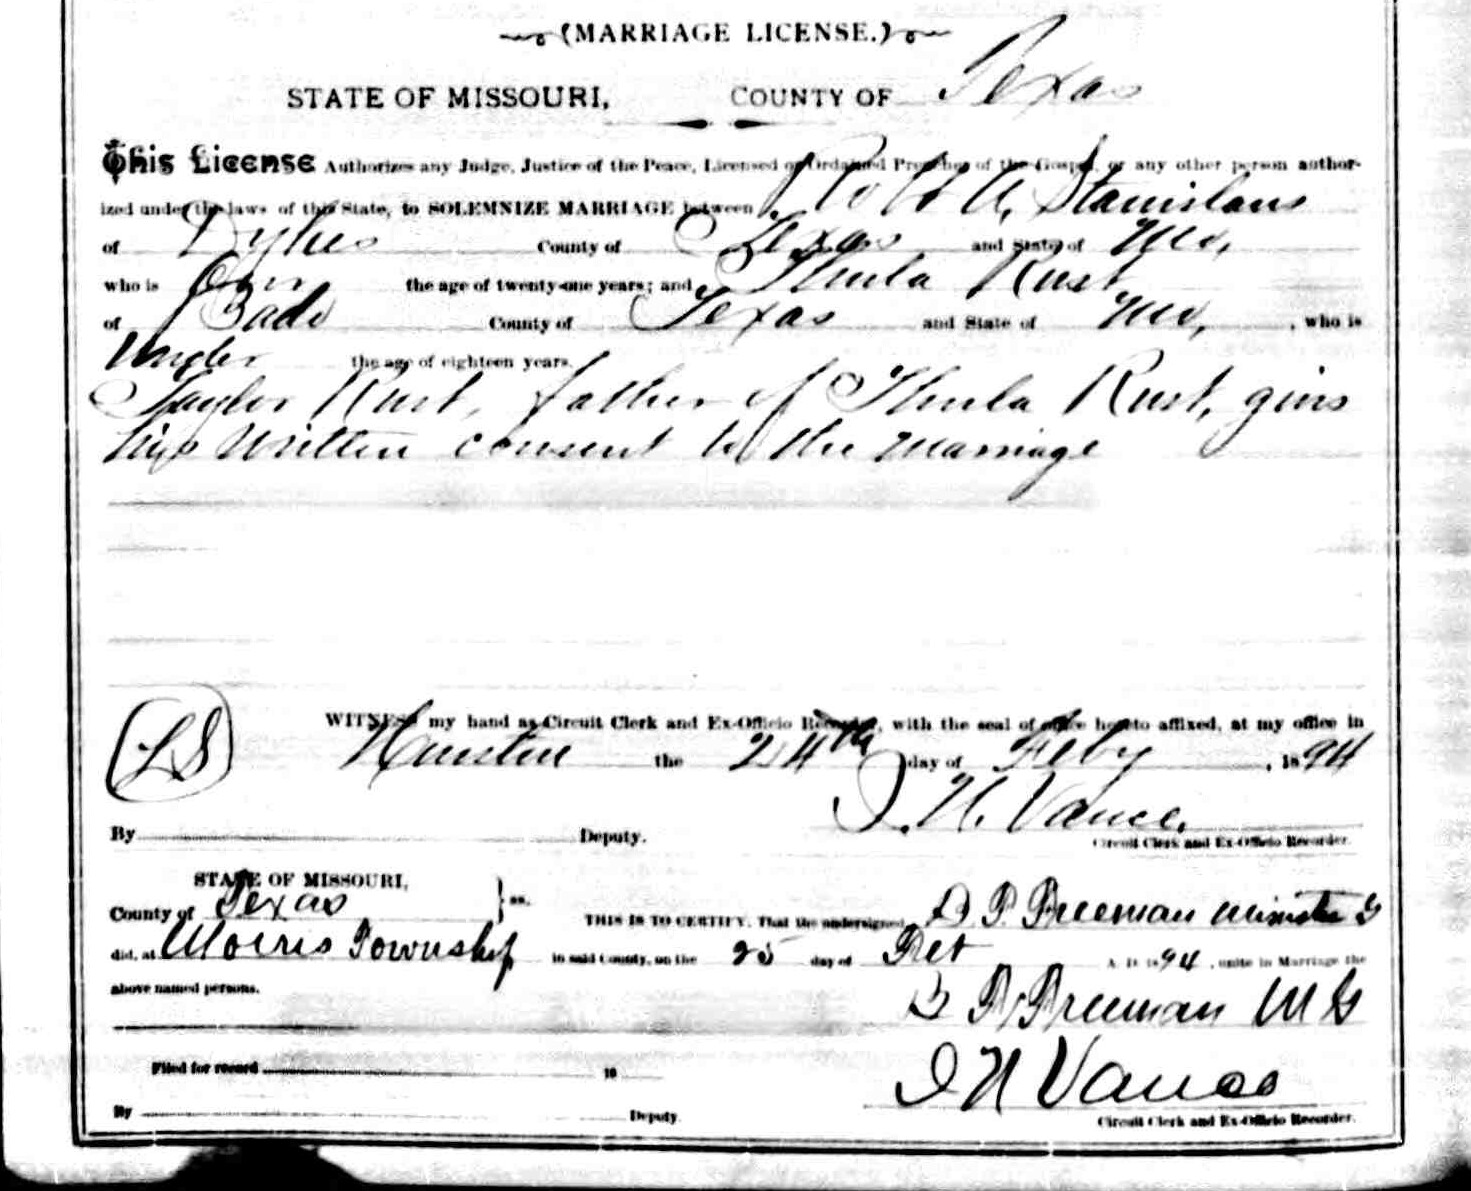 (MARRIAGE LICENSE.)
STATE OF MISSOURI, COUNTY OF Texas
This License Authorizes any Judge, Justice of the Peace, Licensed or Ordained Preacher of the Gospel, or any other person author-
ized under the laws of this State, to SOLEMNIZE MARRIAGE between Robt A. Stanislaus
of Dykes County of Texas and State of Mo,
who is Over the age of twenty-one years; and Thula Rust
of Bado County of Texas and State of Mo, , who is
Under the age of eighteen years.
Taylor Rust, father of Thula Rust, gives
his written consent to the marriage
WITNESS my hand as Circuit Clerk and Ex-Officio Recorder, with the seal of office hereto affixed, at my office in
LS
Houston the 24th day of Feby , 1894
J. N. Vance.
By Deputy.
Circuit Clerk and Ex-Officio Recorder.
STATE OF MISSOURI,
County of Texas } ss. THIS IS TO CERTIFY, That the undersigned, P. Freeman minister G
did, at Morris Township in said County, on the 25 day of Feb A. D. 1894 , unite in Marriage the
above named persons.
P. Freeman M G
Filed for record 18
J N Vance
By Deputy.
Circuit Clerk and Ex-Officio Recorder.